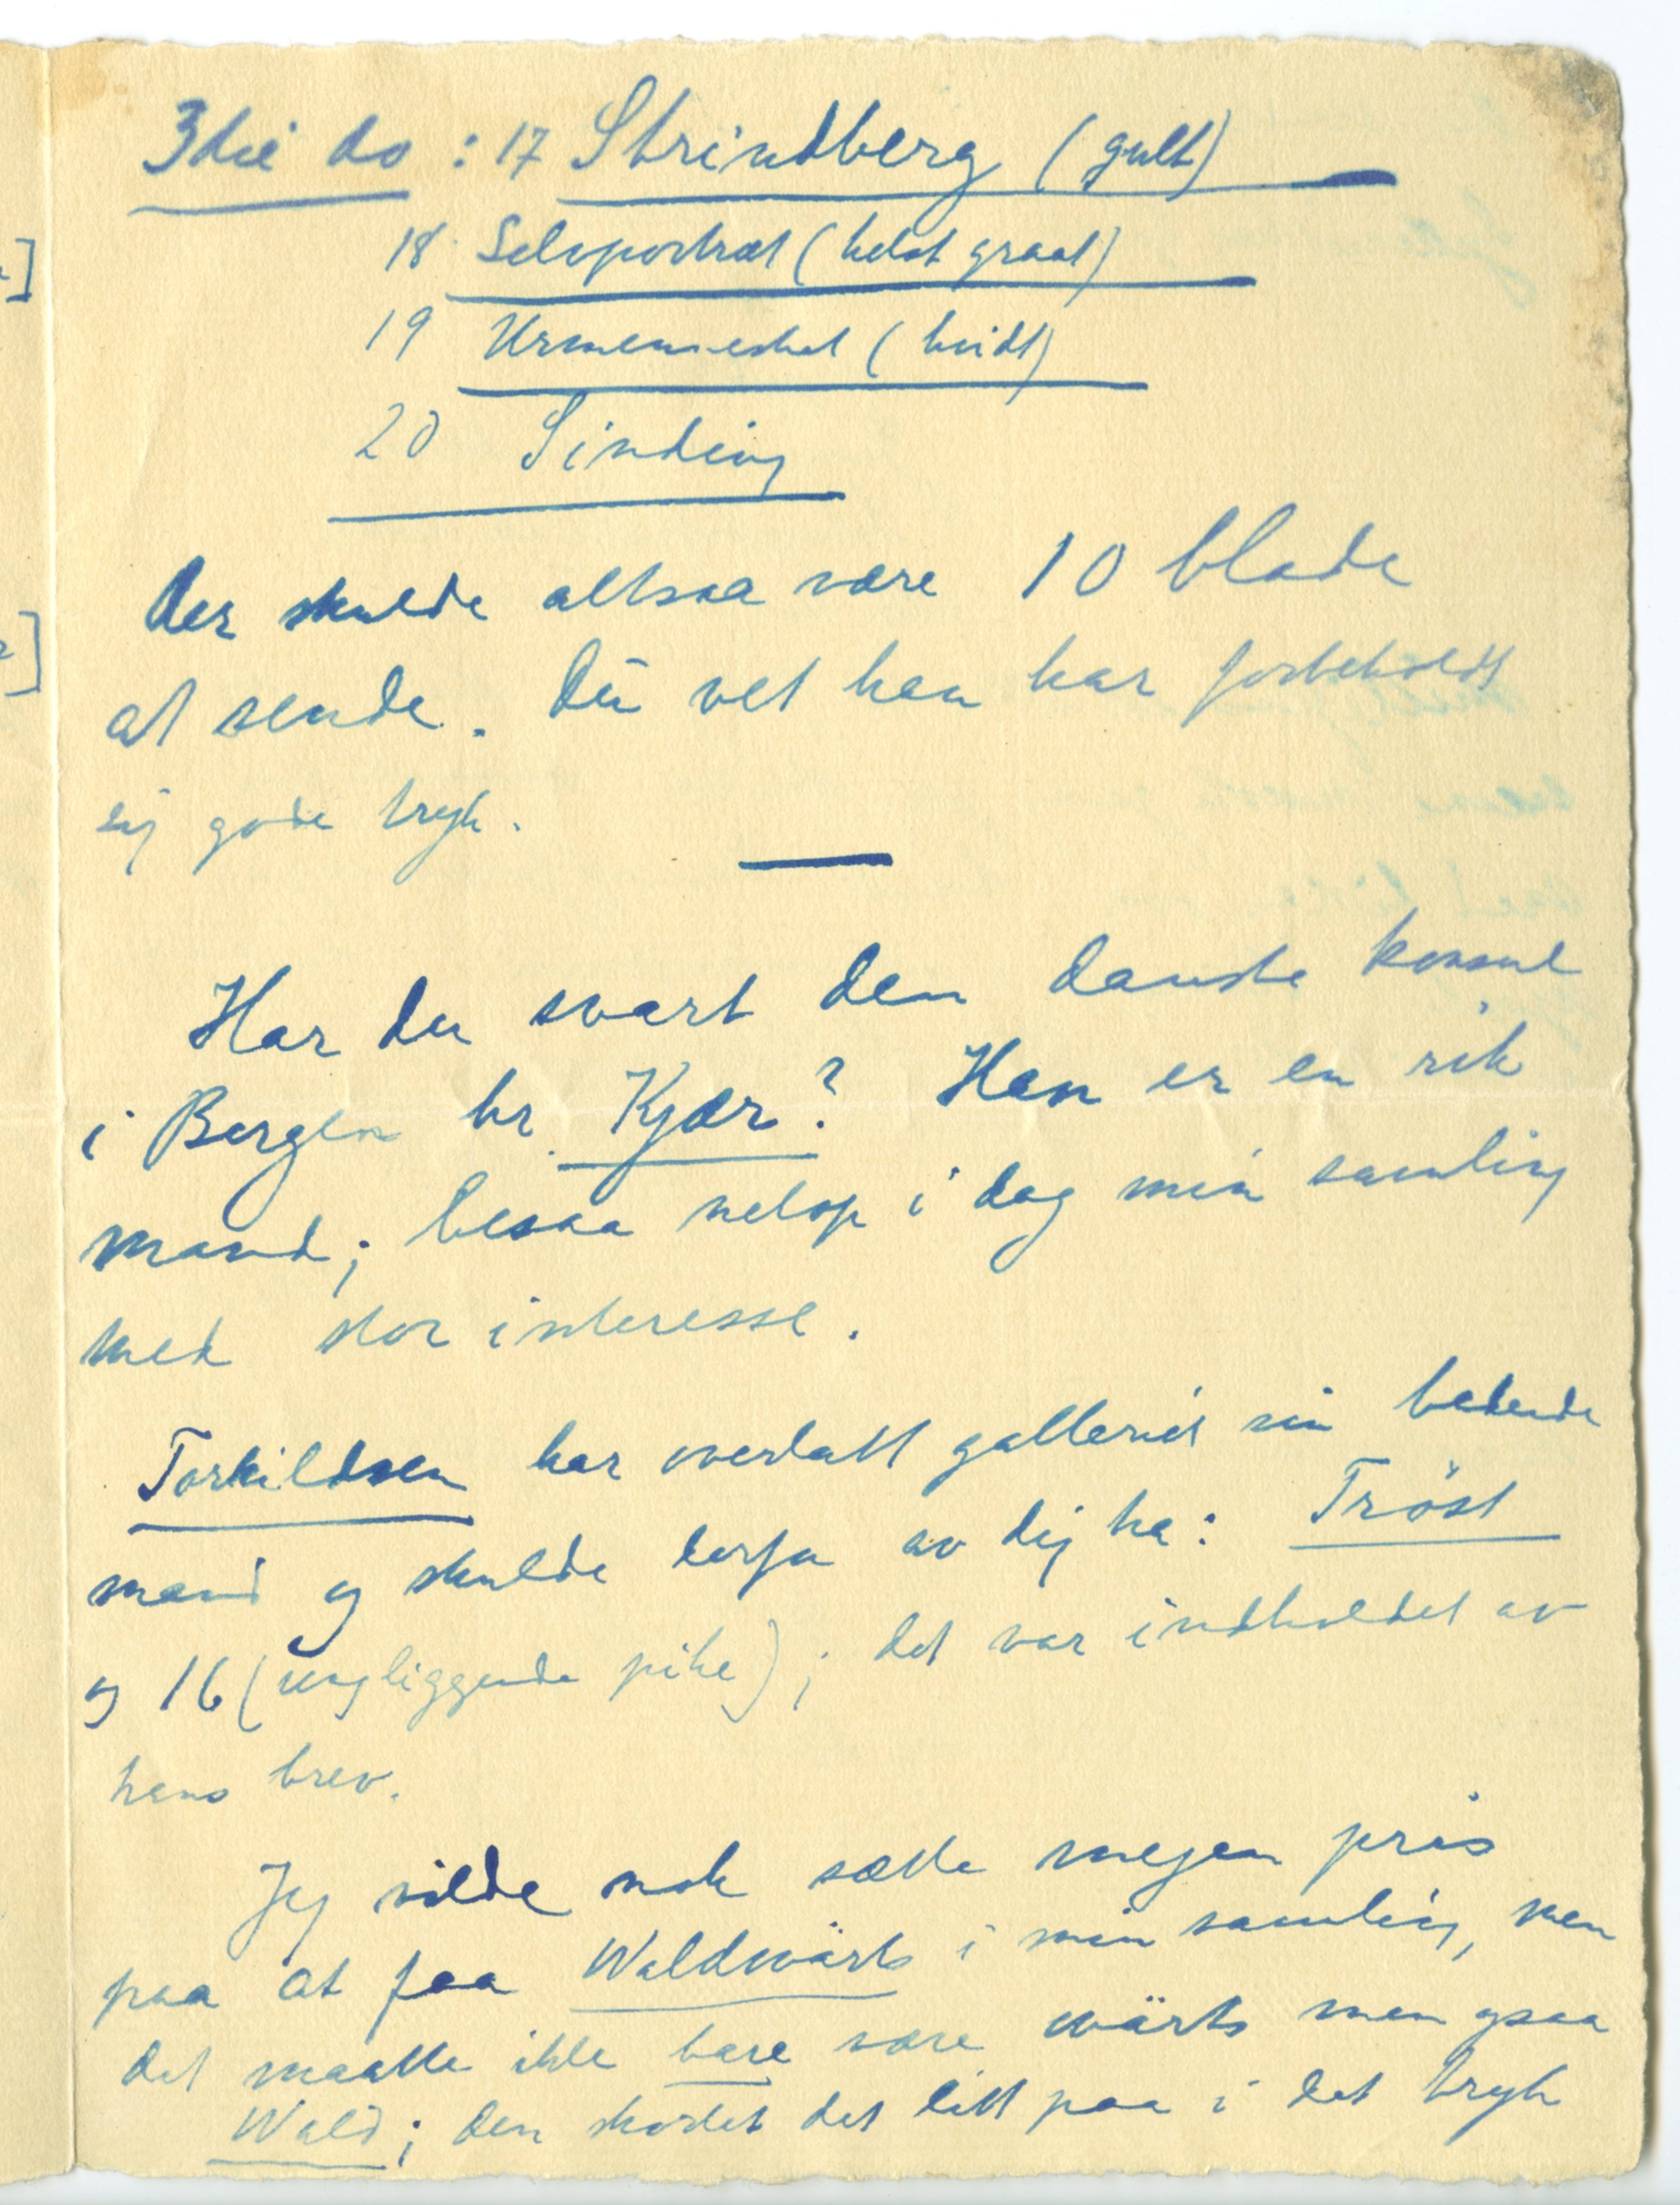 3die do : 17 Strindberg (gult)
18 Selvportræt (helst graat)
19 Urmennesket (hvidt)
20 Sinding
Der skulde altsaa være 10 blade
at sende. Du vet han har forbeholdt
sig gode tryk.
Har du svart den danske konsul
i Bergen hr. Kjær? Han er en rik
mand; besaa netop i dag min samling
med stor interesse.
Torkildsen har overlatt galleriet sin bedende
mand og skulde derfor av dig ha: Tröst
og 16 (ung liggende pike); det var indholdet av
hans brev.
Jeg vilde nok sætte megen pris
paa at faa Waldwärts i min samling, men
det maatte ikke bare være wärts men ogsaa
Wald; den skortet det litt paa i det tryk